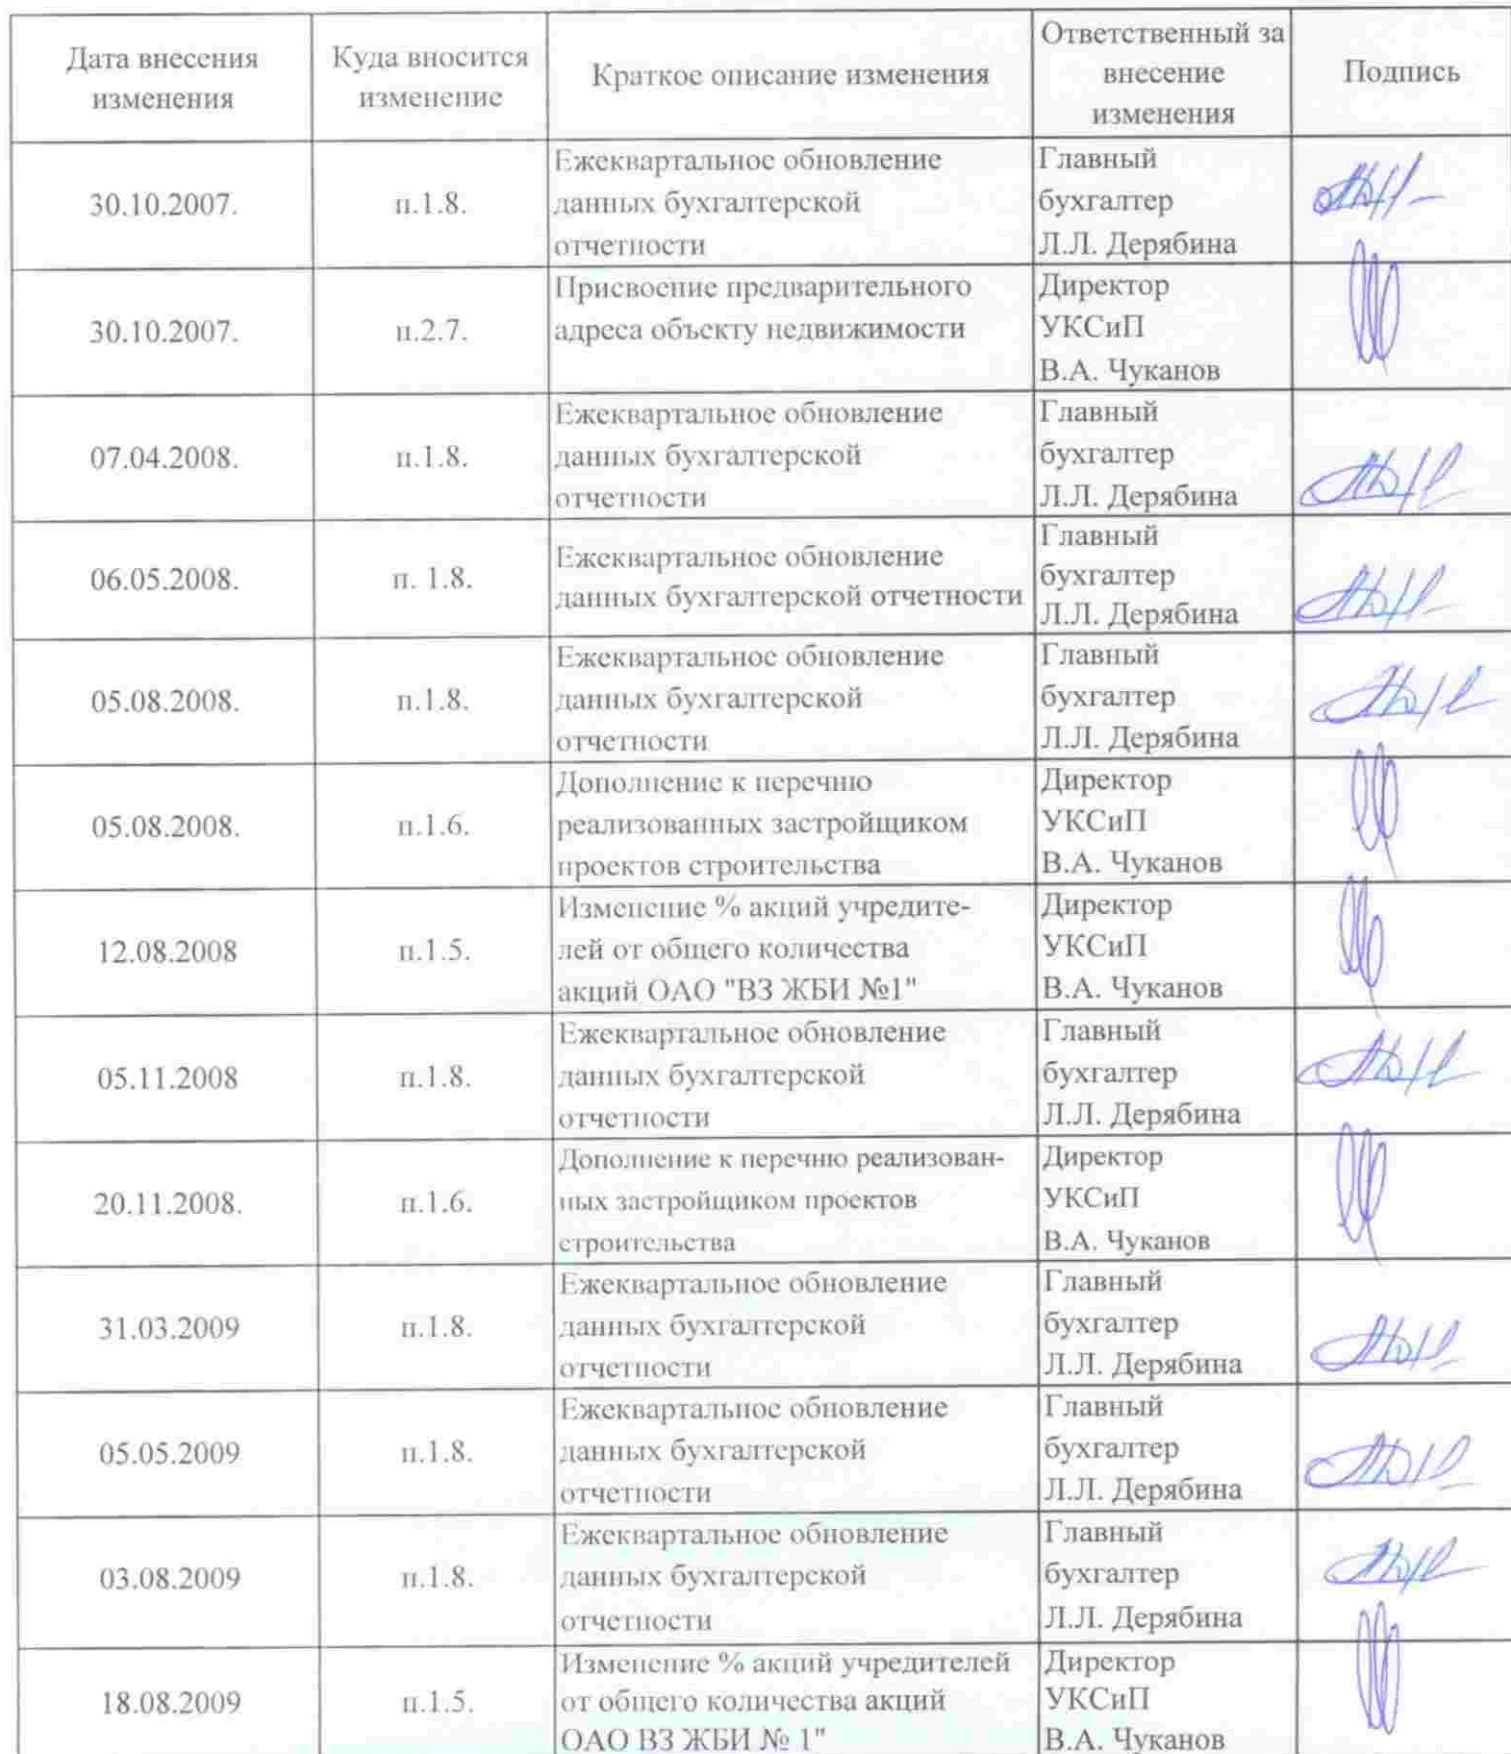 Дата внесения
изменения
Куда вносится
изменение
Краткое описание изменения
Ответственный за
внесение
изменения
Подпись
30.10.2007.
п.1.8.
Ежеквартальное обновление
данных бухгалтерской
отчетности
Главный
бухгалтер
Л.Л. Дерябина
30.10.2007.
п.2.7.
Присвоение предварительного
адреса объекту недвижимости
Директор
УКСиП
В.А. Чуканов
07.04.2008.
п.1.8.
Ежеквартальное обновление
данных бухгалтерской
отчетности
Главный
бухгалтер
Л.Л. Дерябина
06.05.2008.
п. 1.8.
Ежеквартальное обновление
данных бухгалтерской отчетности
Главный
бухгалтер
Л.Л. Дерябина
05.08.2008.
п.1.8.
Ежеквартальное обновление
данных бухгалтерской
отчетности
Главный
бухгалтер
Л.Л. Дерябина
05.08.2008.
п.1.6.
Дополнение к перечню
реализованных застройщиком
проектов строительства
Директор
УКСиП
В.А. Чуканов
12.08.2008
п.1.5.
Изменение % акций учредите-
лей от общего количества
акций ОАО "ВЗ ЖБИ №1"
Директор
УКСиП
В.А. Чуканов
05.11.2008
п.1.8.
Ежеквартальное обновление
данных бухгалтерской
отчетности
Главный
бухгалтер
Л.Л. Дерябина
20.11.2008.
п.1.6.
Дополнение к перечню реализован-
ных застройщиком проектов
строительства
Директор
УКСиП
В.А. Чуканов
31.03.2009
п.1.8.
Ежеквартальное обновление
данных бухгалтерской
отчетности
Главный
бухгалтер
Л.Л. Дерябина
05.05.2009
п.1.8.
Ежеквартальное обновление
данных бухгалтерской
отчетности
Главный
бухгалтер
Л.Л. Дерябина
03.08.2009
п.1.8.
Ежеквартальное обновление
данных бухгалтерской
отчетности
Главный
бухгалтер
Л.Л. Дерябина
18.08.2009
п.1.5.
Изменение % акций учредителей
от общего количества акций
ОАО ВЗ ЖБИ № 1"
Директор
УКСиП
В.А. Чуканов